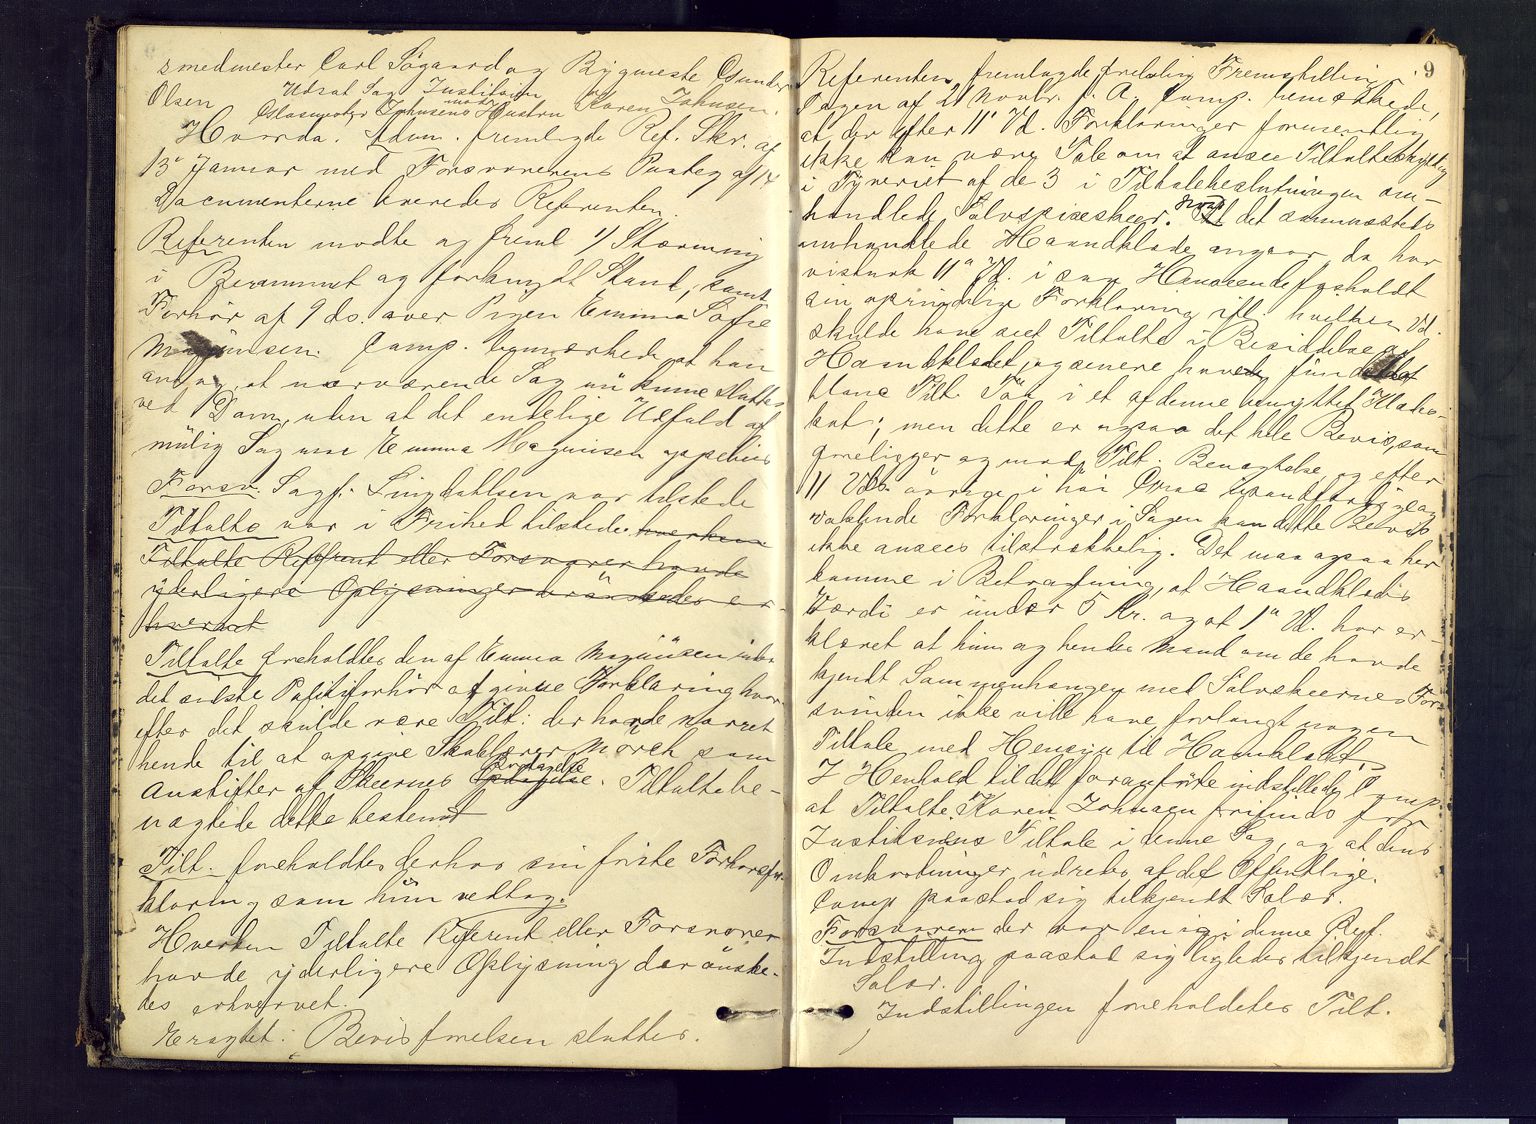 smedmester Carl Søgaard og Bygmester Gunder
Olsen Udsat Sag Justitsen
Glasmester Johnsens Hustru Karen Johnsen.
Hvorda. Adm. fremlagde Ref. Skr. af
13de Januar med Forsvarerens Paateg. af 14
Documenterne leveredes Referenten.
Referenten mødte og freml 1/ Stævning
i Berammet og forkyndt Stand, samt
Forhør af 9 ds. over Pigen Emma Sofie
Magnusen. Comp. bemærkede at han
ansaa, at nærværende Sag nu kunne sluttes
ved Dom, uden at det endelige Udfald af
mulig Sag mod Emma Magnusen oppebies
Forsv. Sagf. Lingdahlsen var tilstede
Tiltalte var i Frihed tilstede. hverken
Tiltalte Referent eller Forsvarer havde
yderligere Oplysninger der önskedes er-
hvervet
Tiltalte foreholdtes den af Emma Magnusen under
det sidste Politiforhör afgivne Forklaring hvor-
efter det skulde være Tilt. der havde narret
hende til at opgive Skolelærer Mörch som
Anstifter af Skeernes Borttagelse. Tiltalte be-
nægtede dette bestemt
Tilt. foreholdtes derhos sin første Forhørsfor-
klaring som hun vedtog.
Hverken Tiltalte Referent eller Forsvarer
havde yderligere Oplysning der önske-
des erhvervet.
Eragtet: Bevisførelsen sluttes.
9
Referenten fremlagde frelslig Fremstilling
Sagen af 21 Novbr. f. A. Comp. bemærkede,
at der efter 11te Vd. Forklaringer formentlig
ikke kan være Tale om at ansee Tiltalte skyldig
i Tyveriet af de 3 i Tiltalebeslutningen om-
handlede Sølvspiseskeer. Hvad det sammesteds
omhandlede Haandklæde angaar, da har
vistnok 11te Vd. i saa Henseende fastholdt
sin oprindelige Forklaring ifl. hvilken Vd.
skulde have seet Tiltalte i Besiddelse af
Haandklædet, og senere have fundet det
blant Tilt. Tøi i et af denne benyttet Klæde-
skab; men dette er ogsaa det hele Bevis, som
foreligger og mod Tilt. Benægtelse og efter
11 Vds. övrige i höi Grad
vaklende Forklaringer i Sagen kan dette Bevis
ikke ansees tilstrækkelig. Det maa ogsaa her
komme i Betragtning, at Haandklædets
Værdi er under 5 Kr. og at 1ste Vd. har er-
klæret at hun og hendes Mand om de havde
kjendt Sammenhængen med Sølvskeernes For-
svinden ikke ville have forlangt nogen
Tiltale med Hensyn til Haandklædet.
I Henhold til det foranförte indstillede Comp.
at Tiltalte Karen Johnsen frifindes for
Justitsens Tiltale i denne Sag, og at dens
Omkostninger udredes af det Offentlige.
Comp. paastod sig tilkjendt Salær.
Forsvareren der var enig i denne Ref.
Indstilling paastod sig ligeledes tilkjendt
Salær.
Indstillingen foreholdtes Tilt.